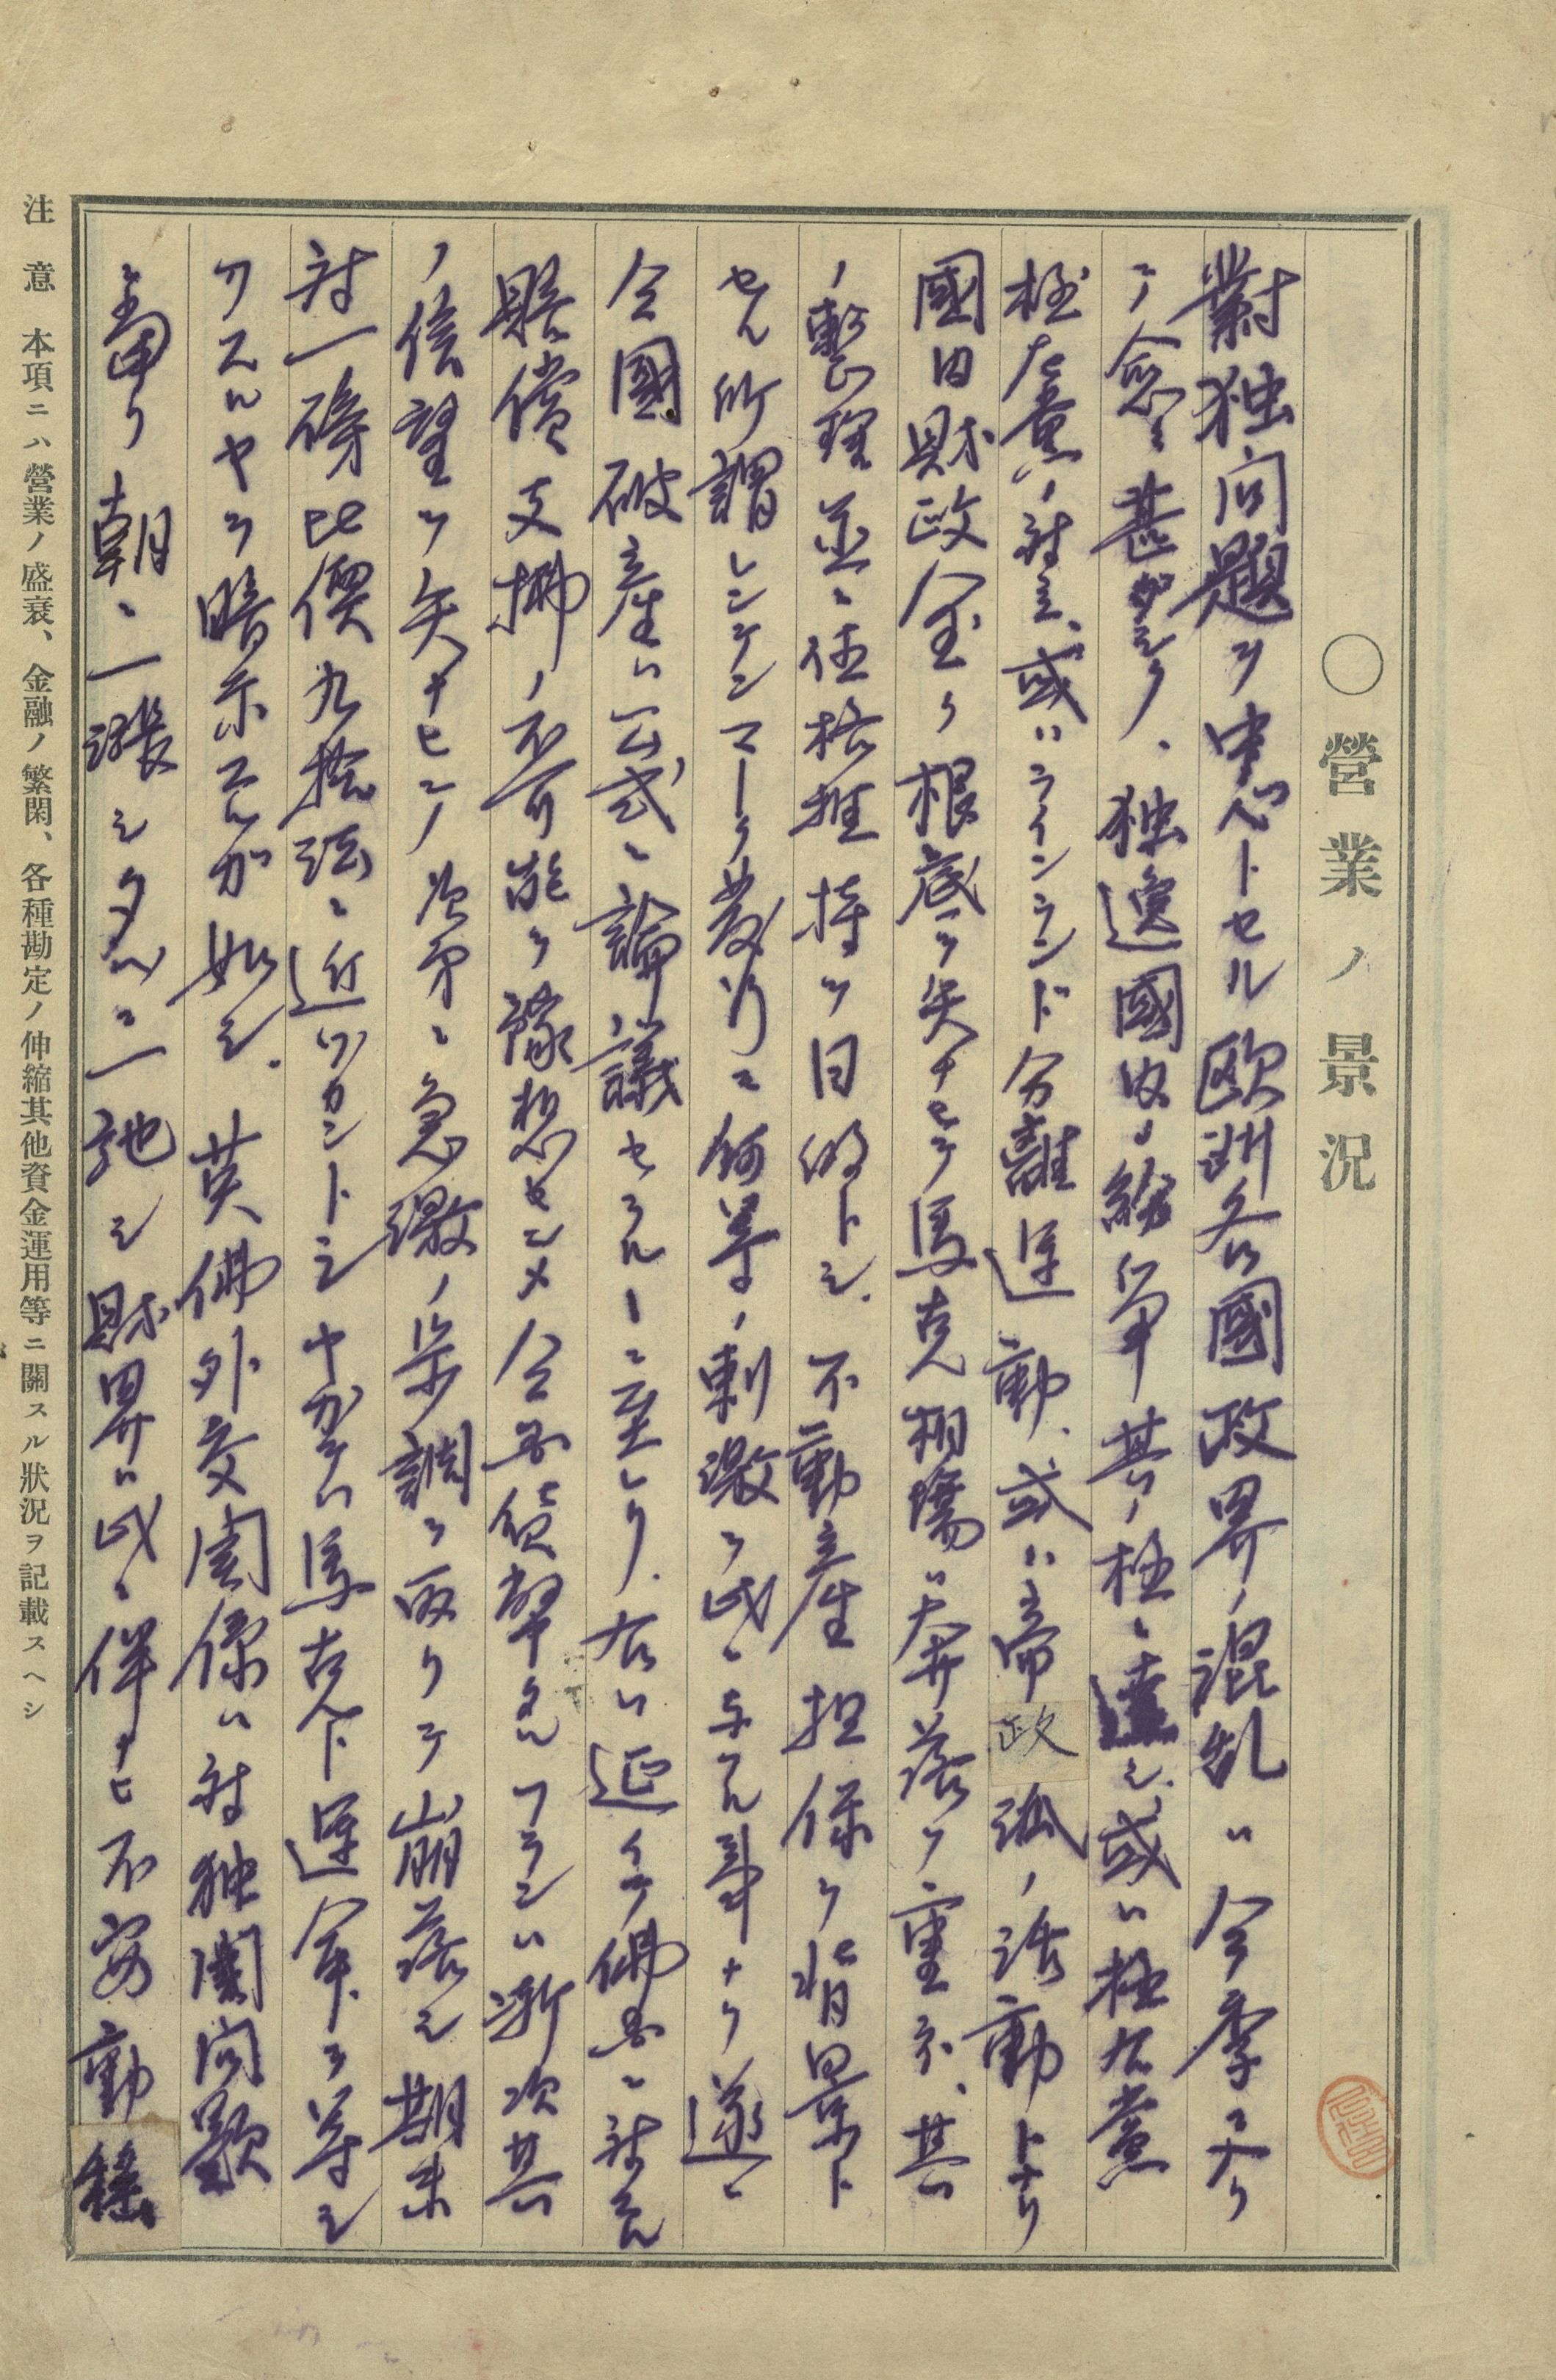 〇營業ノ景況
對独問題ヲ中心トセル欧洲各國政界ノ混乱ハ今季ニ入リ
テ愈々甚ダシク、独逸國内ノ紛争其ノ極ニ達シ、或ハ極右黨
極左黨ノ対立、或ハラインランド分離運動、或ハ帝政派ノ活動トナリ
國内財政全ク根底ヲ失ナヒテ馬克相場ハ大奔落ヲ重ネ、其
ノ整理並ニ価格維持ヲ目的トシ、不動産担保ヲ背景ト
セル所謂レンテンマーク発行モ何等ノ刺激ヲ此ニ与ヘル事ナク遂ニ
全國破産ハ公式ニ論議セラルヽニ至レリ、右ハ延イテ佛国ニ対スル
賠償支拂ノ不可能ヲ豫想セシメ全国債権タルフランハ漸次其
ノ信望ヲ失ナヒシノ次第ニ急激ノ歩調ヲ取リテ崩落シ期末
対一磅比價九拾法ニ近ヅカントシヤガテハ馬克ト運命ヲ等シ
クスルヤヲ暗示スルガ如シ、英佛外交関係ハ対独関問題
ニ當リ朝ニ一張シタベニ一弛シ財界ハ此ニ伴ナヒ不安動揺
注意 本項ニハ營業ノ盛衰、金融ノ繁閑、各種勘定ノ伸縮其他資金運用等ニ關スル狀況ヲ記載スヘシ